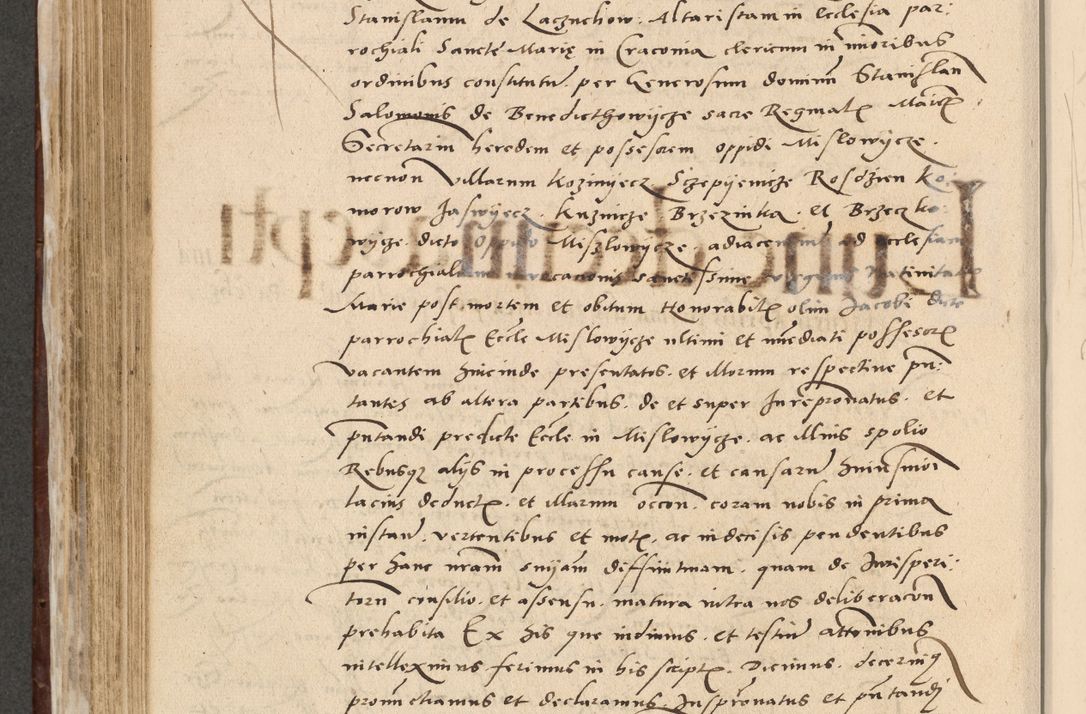 Stanislaum de Laczuchow. Altaristam in ecclesia par:
rochiali Sancte Marię in Craconia clericum in minoribus
ordinibus constitutũ. per Generosum dominũ Stanislau
Salomonis de Benedicthowycze sacre Reginalz Maiestz
Secretariũ heredem et possessorem oppidi Mislowycze.
necnon villarum Kozimyecz Sczepyemcze Rosdzien Ko:
morow Jaswyecz. Kuznicze Brzezinka. et Brzeczko
wycze. dicto oppido Miszlowycze. adiacen ad ecclesiam
parrochialem sanctissime virginis Natiuitatis
Marie post mortem et obitum Honorabilz olim Jacobi dicte
parrochialz Eccłe Mislowycze ultimi et īmediati possessorz
vacantem hincinde presentatos. et illorum respectiue pñ:
tantes ab altera partibus. de et super Jurepronatus. et
pñtandi predicte Eccłe in Mislowycze. ac illius spolio
Rebusqz alys in processu cause. et causarũ huiusmoi
lacius deductz. et illarum occõn. coram nobis in prima
instanc. vertentibus et motz. ac indecisis pendentibus
per hanc nrãm snyam diffinituam. quam de Jurisperi:
torũ consilio. et assensu. matura intra nos deliberacõn
prehabita Ex his que vidimus. et testiũ attõnibus
intelleximus ferimus in his scriptz. Dicimus. decernim9
pronũctiamus et declaramus. Juspr̃onatus et pñtandj